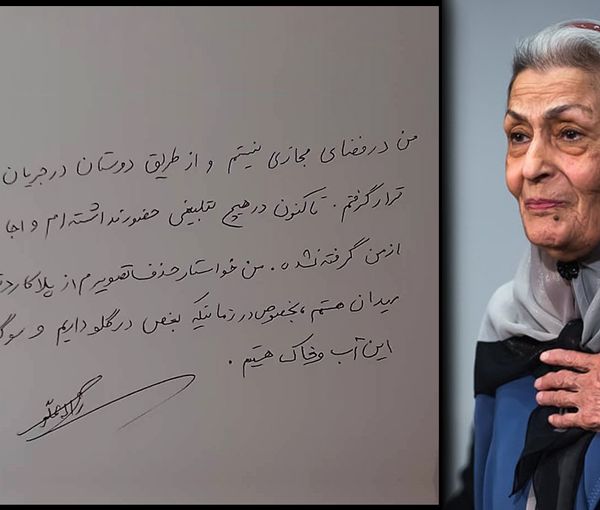 من در فضای مجازی نیستم و از طریق دوستان در جریان
قرار گرفتم. تاکنون در هیچ تبلیغی حضور نداشته ام و اجا
از من گرفته نشده. من خواستار حذف تصویرم از پلاکارد
میدان هستم، بخصوص در زمانیکه بغض در گلو داریم و سوگ
این آب و خاک هستیم.